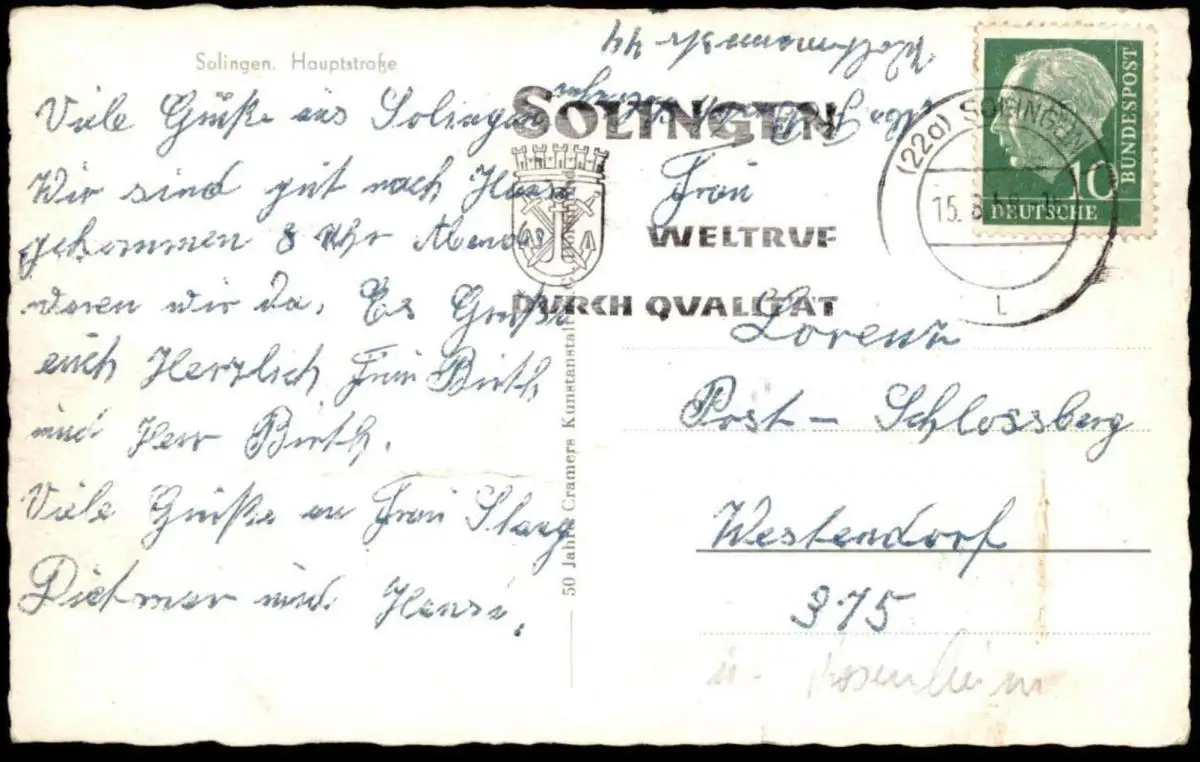 Solingen. Hauptstraße
Viele Grüße aus Solingen
Wir sind gut nach Hause
gekommen 8 Uhr Abend
waren wir da. Es Grüßt
euch Herzlich Frau Birth
und Herr Birth.
Viele Grüße an Frau Stang
Dietmar und Hansi.
SOLINGEN
WELTRUF
DURCH QUALITÄT
50 Jahre Cramers Kunstanstalt
(22a) SOLINGEN
15. 8.
L
10
DEUTSCHE
BUNDESPOST
Frau
Lorenz
Post - Schlossberg
Westendorf
375
Rosenheim